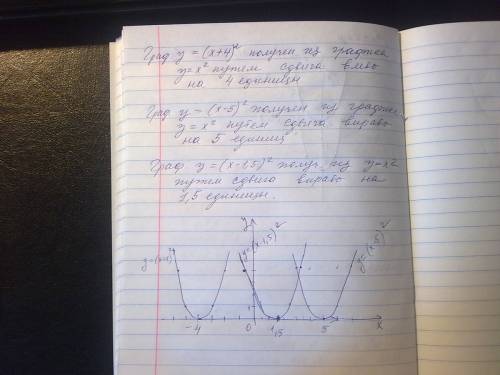 Граф y = (x+4)² получен из графика
y=x² путем сдвига влево
на 4 единицы
Граф y = (x-5)² получен из графика
y=x² путем сдвига вправо
на 5 единиц
Граф y = (x-1,5)² получ. из y=x²
путем сдвига вправо на
1,5 единицы.
y
y=(x+4)²
y=(x-1,5)²
y=(x-5)²
-4 0 1,5 5 x